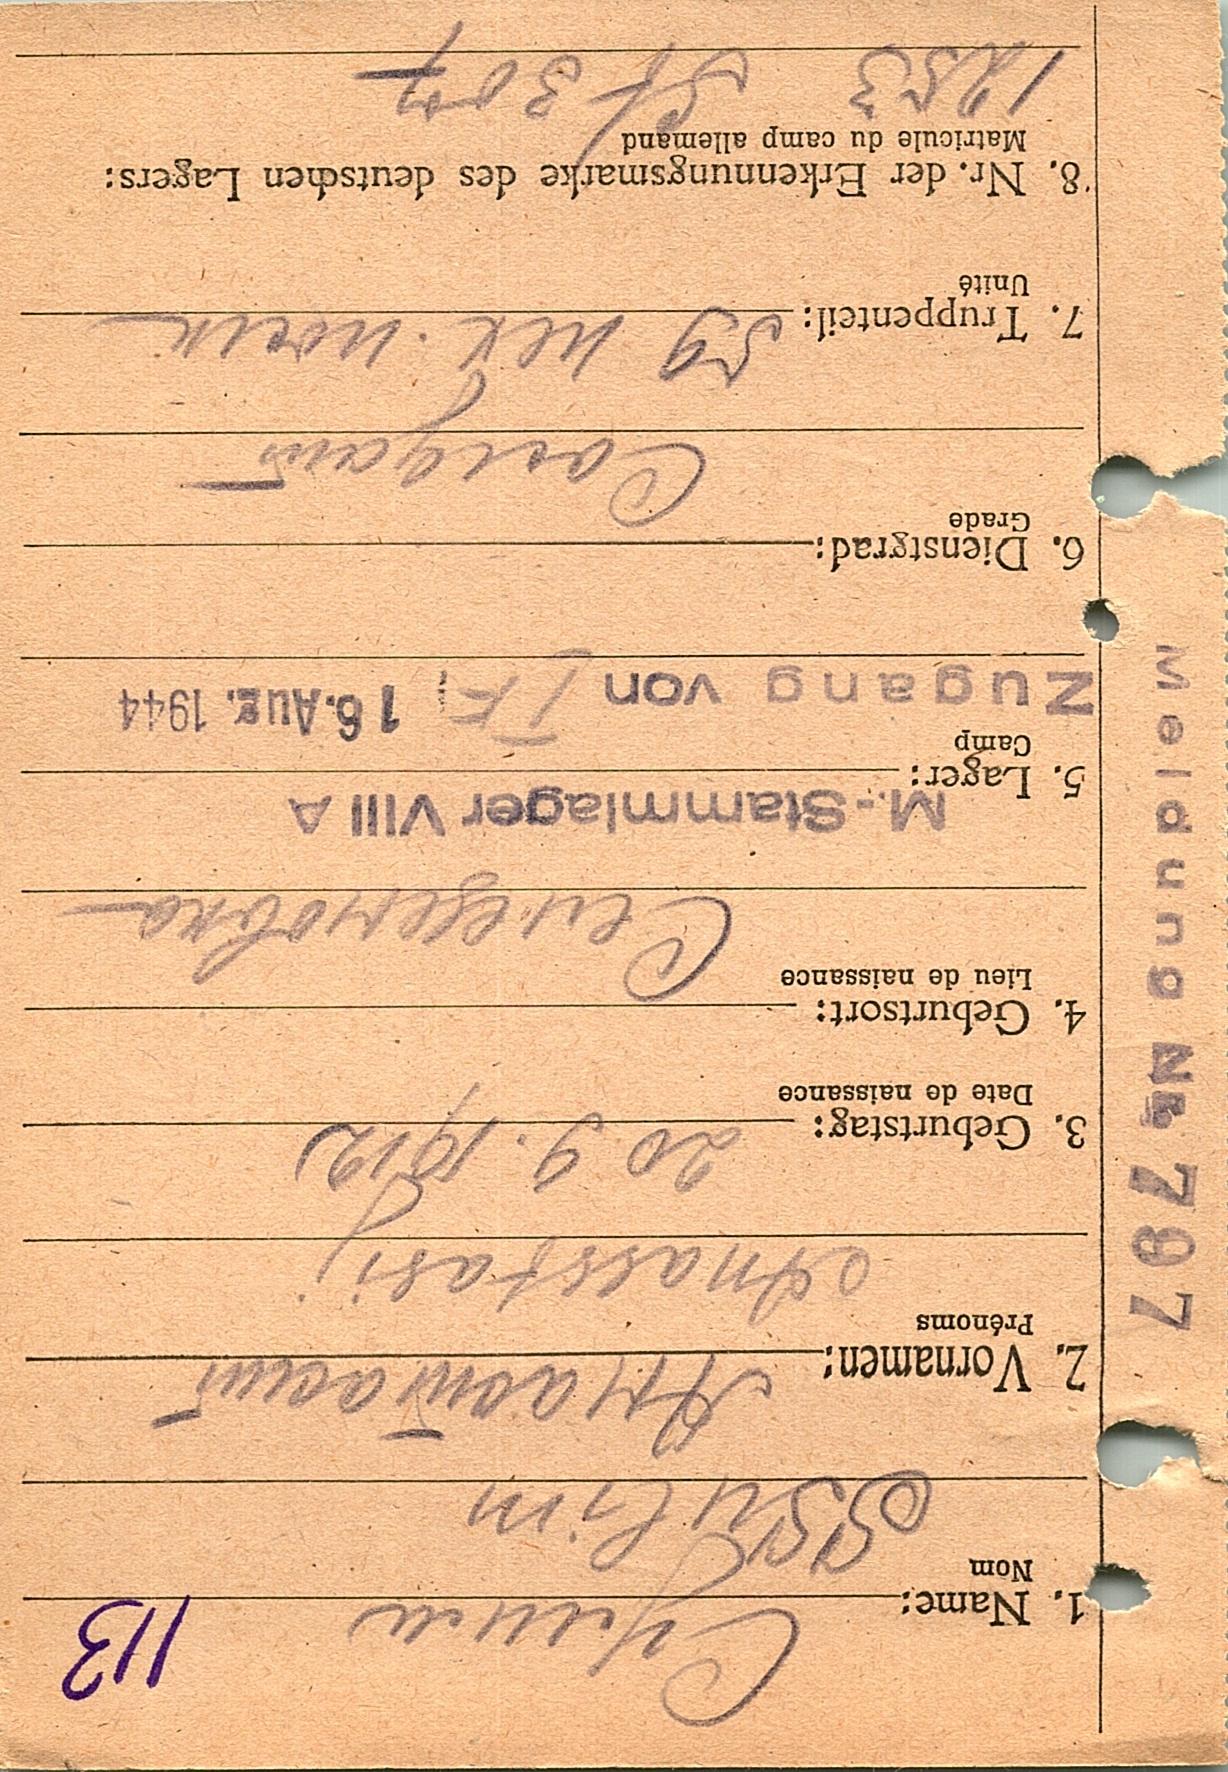 113
1. Name: Сулим
Nom
Ssulim
2. Vornamen: Анастасий
Prénoms
Anasstasij
3. Geburtstag: 20 9. 1912
Date de naissance
4. Geburtsort:
Lieu de naissance
M.-Stammlager VIII A
5. Lager:
Camp
Zugang von 16. Aug. 1944
6. Dienstgrad:
Grade
Солдат
7. Truppenteil: 59 пех. полк
Unité
8. Nr. der Erkennungsmarke des deutschen Lagers:
Matricule du camp allemand
1253 St 307
Meldung Nr. 797